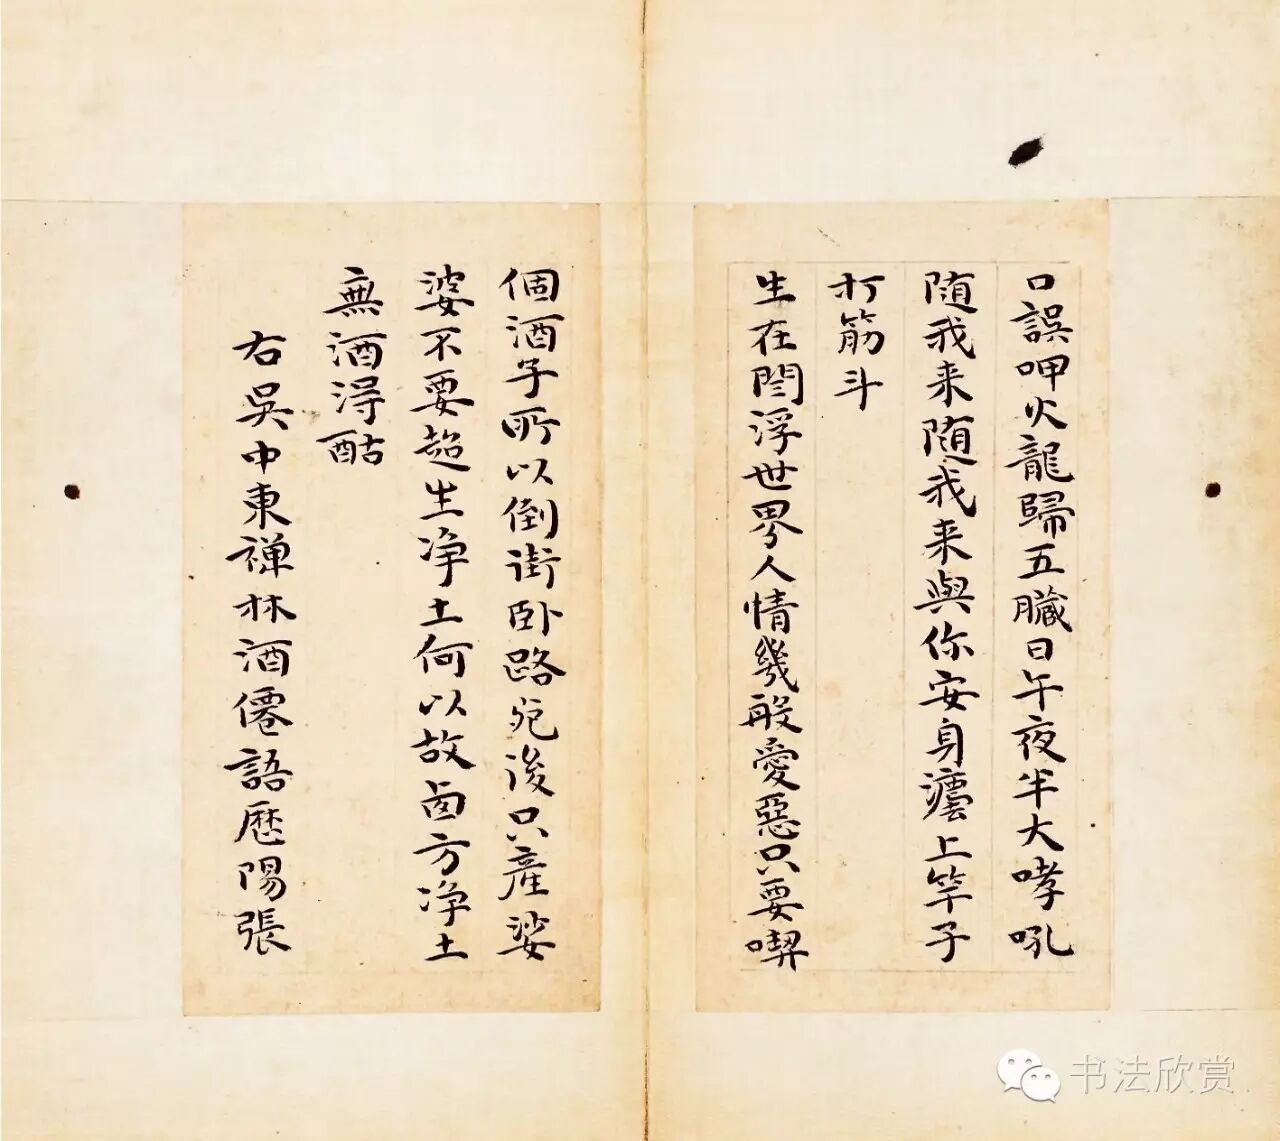 口誤呷火龍歸五臟日午夜半大哮吼
随我来随我来與你安身灋上竿子
打筋斗
生在閻浮世界人情幾般愛惡只要喫
個酒子所以倒街卧路死後只産娑
婆不要超生浄土何以故西方浄土
無酒得酤
右吳中東禅林酒僊語歷陽張
书法欣赏